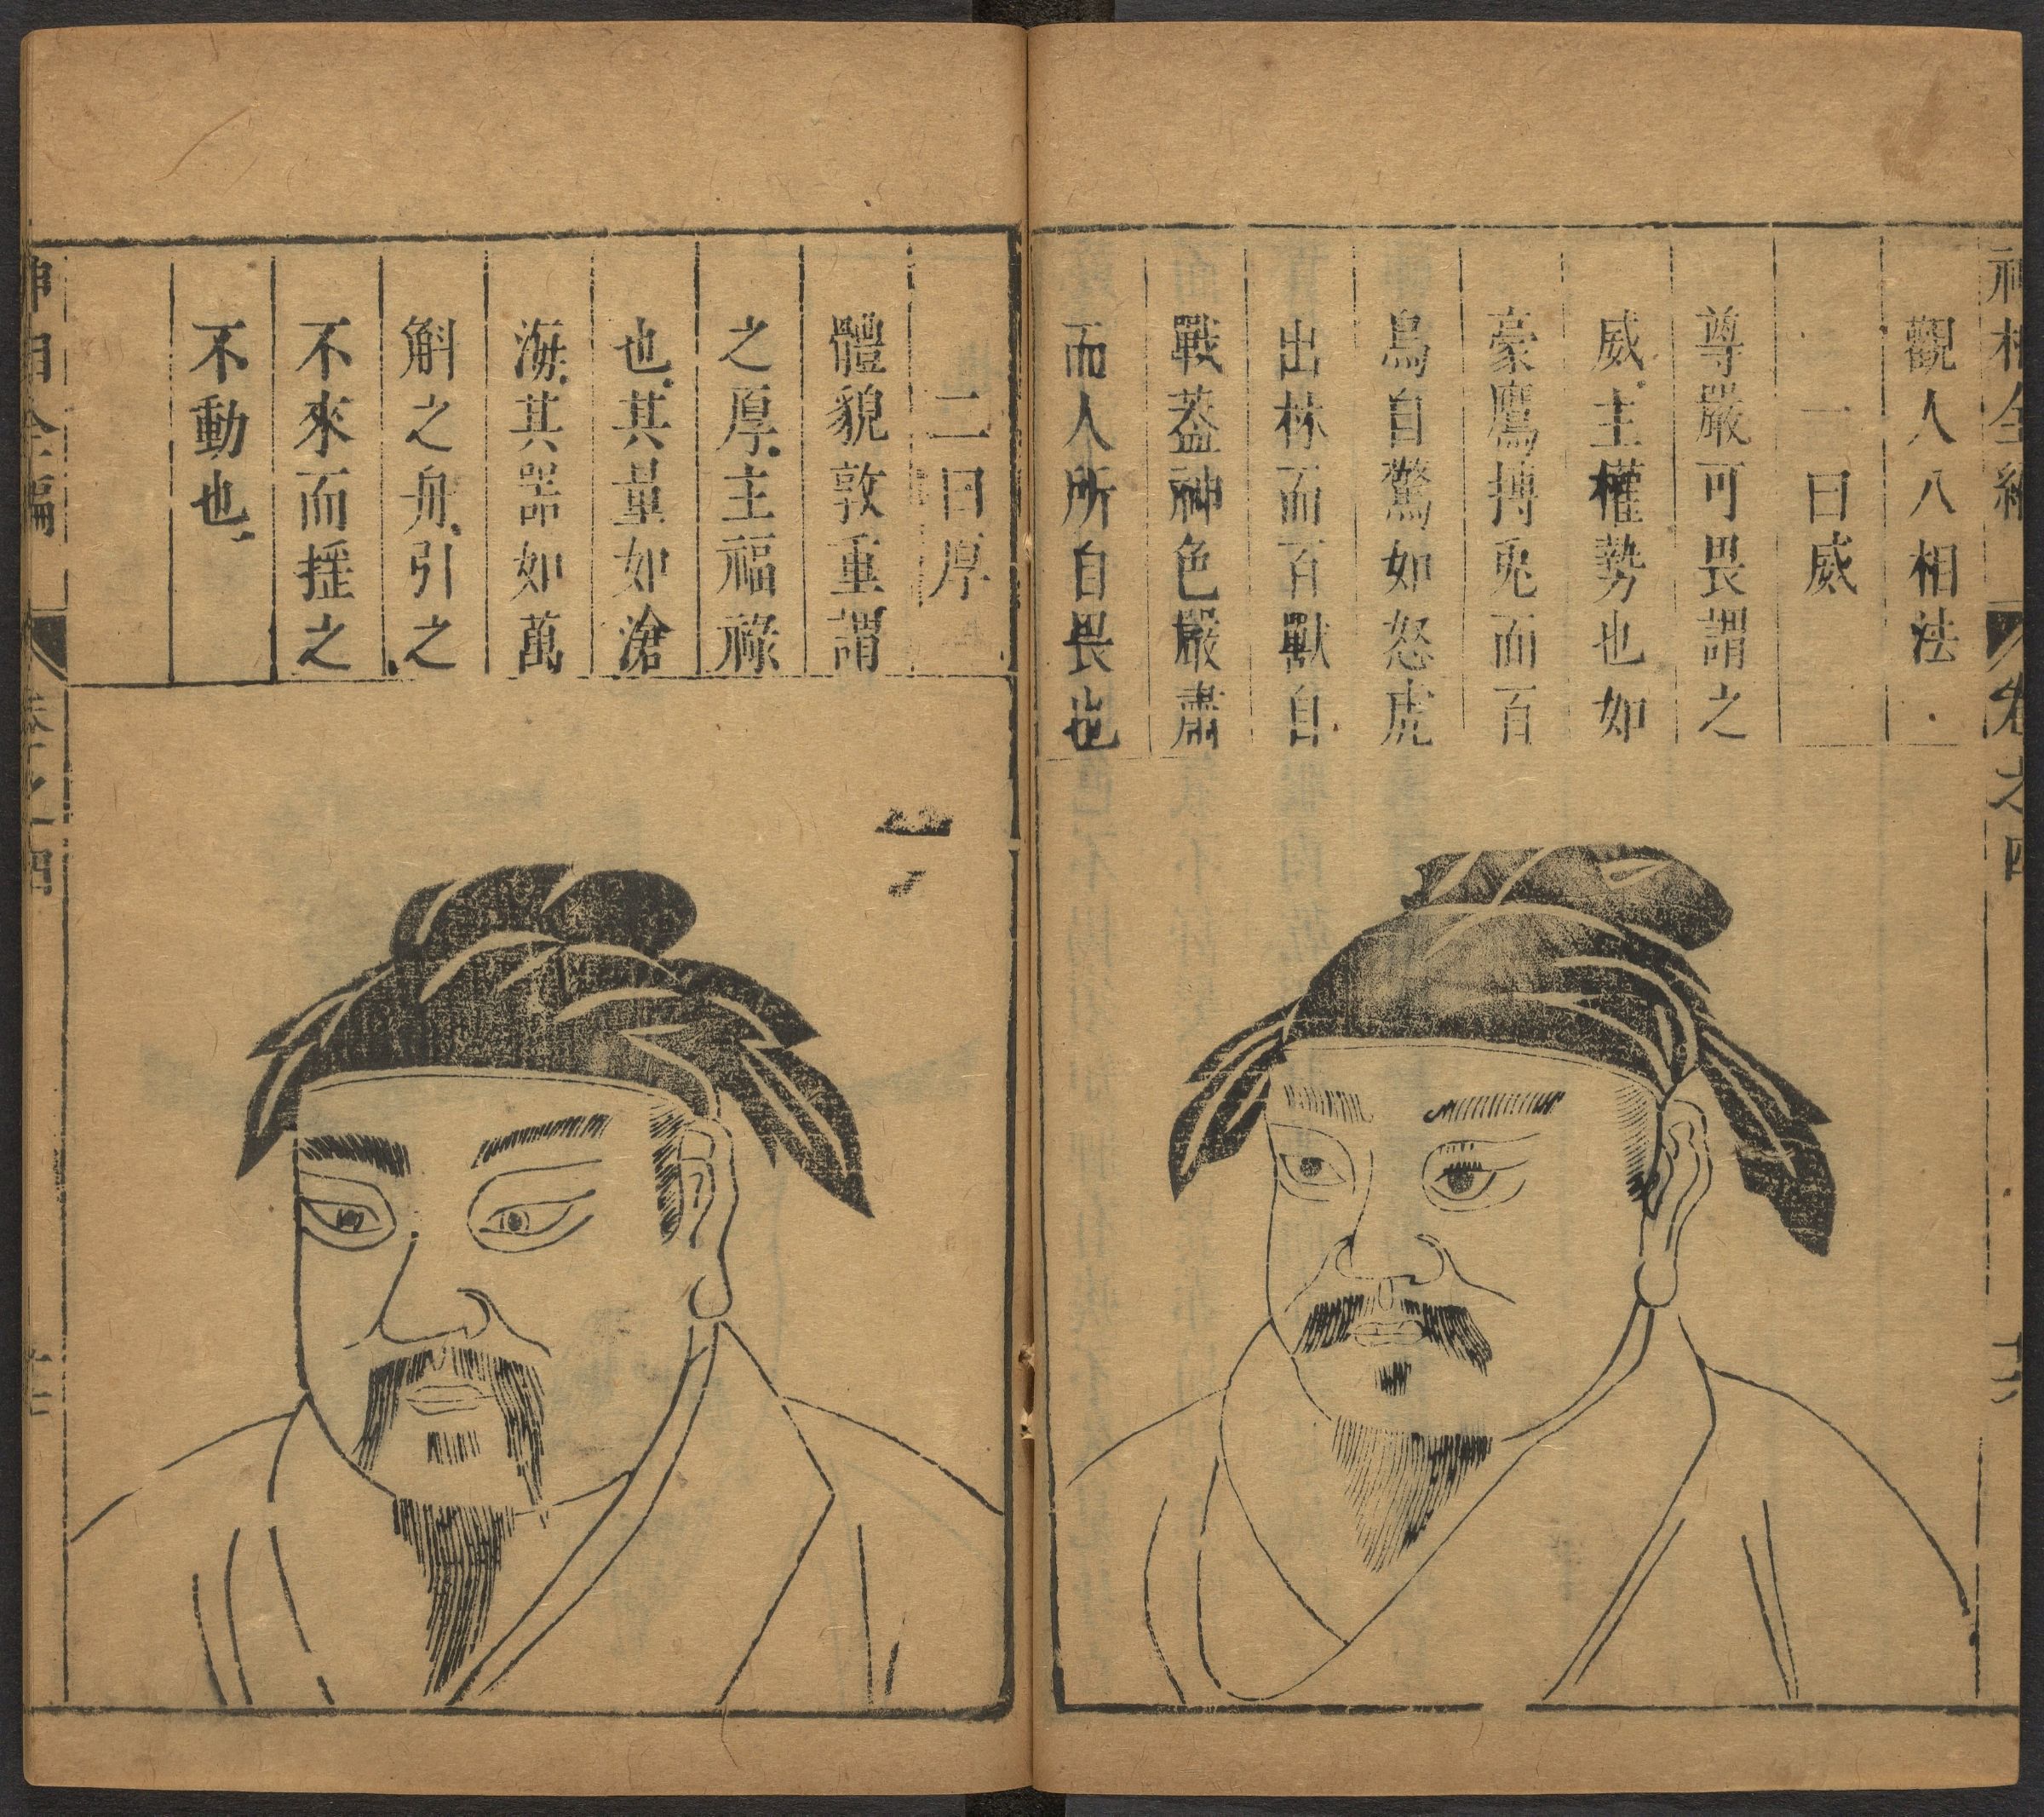 神相全編 卷之四 十六
觀人八相法
一曰威
尊嚴可畏謂之
威主權勢也如
豪鷹搏兎而百
鳥自驚如怒虎
出林而百獸自
戰葢神色嚴肅
而人所自畏也
二曰厚
體貌敦重謂
之厚主福祿
也其量如滄
海其器如萬
斛之舟引之
不來而揺之
不動也
神相全編 卷之四